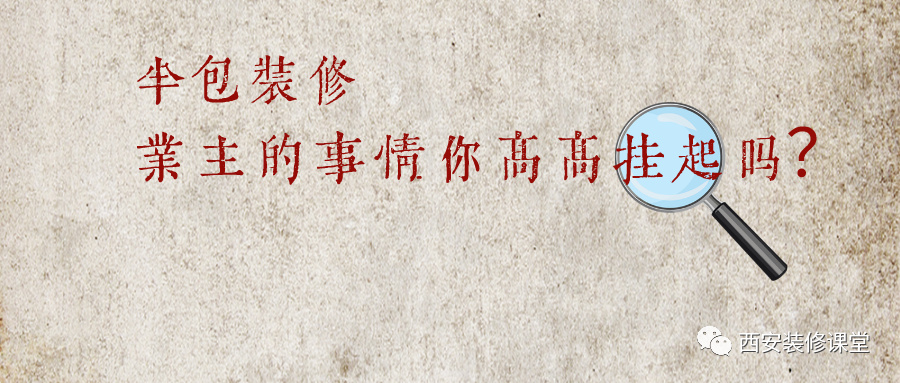 半包裝修
業主的事情你髙髙挂起吗？
西安装修课堂